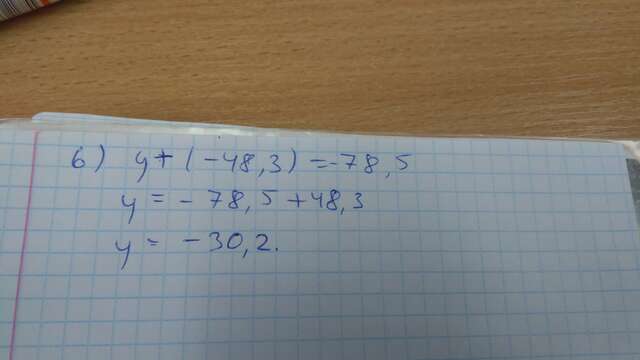 б) y + (-48,3) = -78,5
y = - 78,5 + 48,3
y = - 30,2.